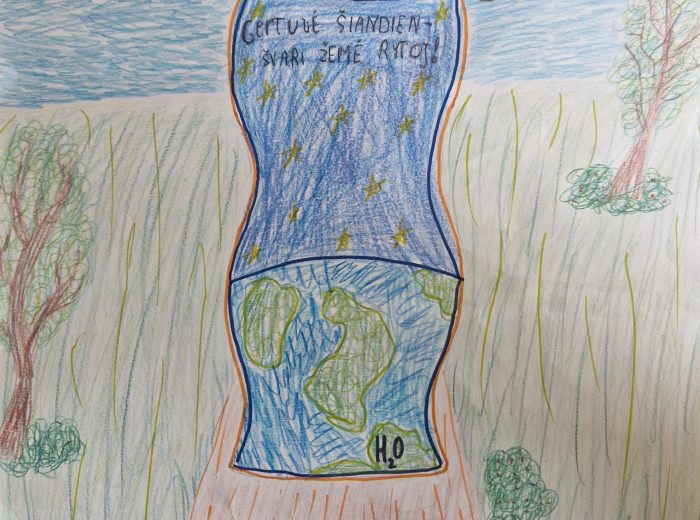 GERTUVĖ ŠIANDIEN-
ŠVARI ŽEMĖ RYTOJ!
H₂O